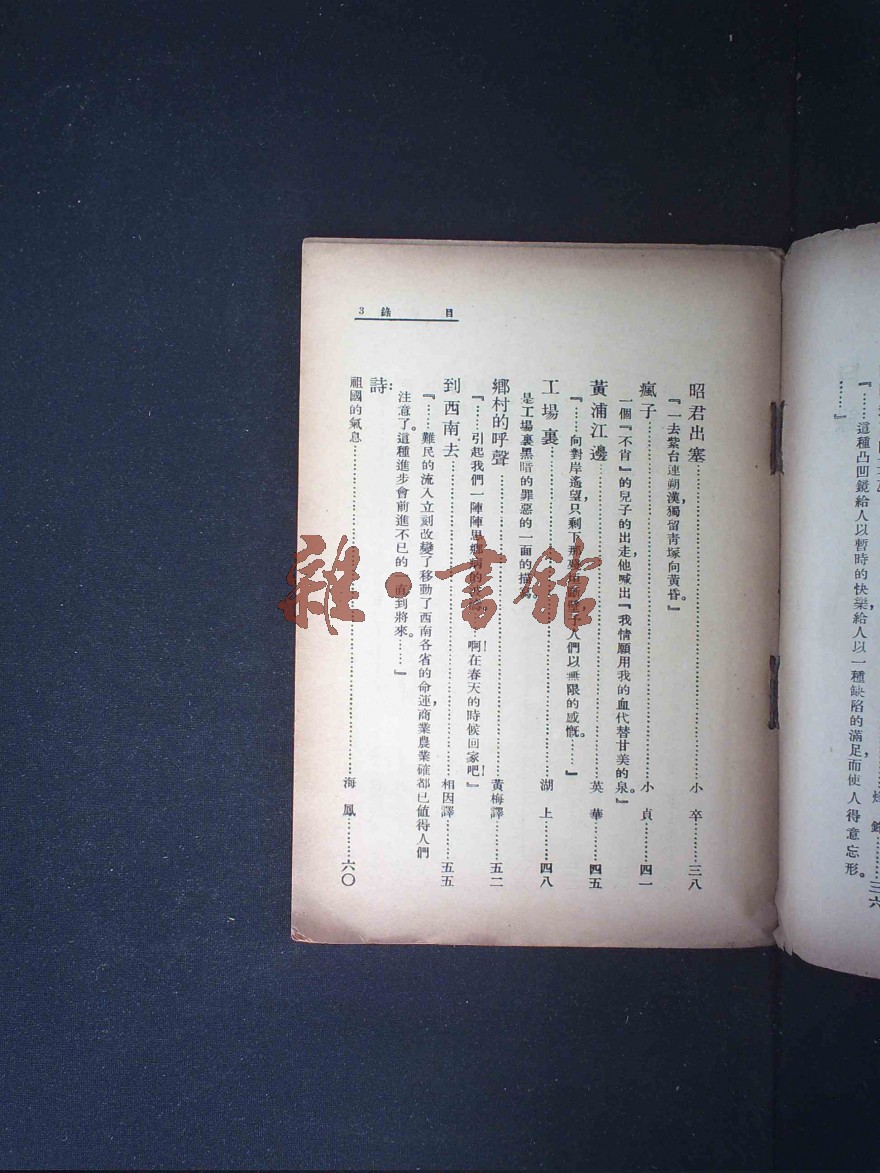 『……這種凸凹鏡給人以暫時的快樂給人以一種缺陷的滿足而使人得意忘形。
……』
三六
目錄 3
昭君出塞……小卒……三八
『一去紫台連朔漠，獨留靑塚向黃昏。』
瘋子……小貞……四一
一個『不肖』的兒子的出走，他喊出『我情願用我的血代替甘美的泉。』
黃浦江邊……英華……四五
『……向對岸遙望，只剩下 人們以無限的感慨。……』
工場裏……湖上……四八
是工場裏黑暗的罪惡的一面的描寫。
鄕村的呼聲……黃梅譯……五二
『……引起我們一陣陣思鄕病的 ……啊！在春天的時候回家吧！』
到西南去……相因譯……五五
『……難民的流入立刻改變了移動了西南各省的命運，商業農業確都已値得人們
注意了。這種進步會前進不已的一直到將來。……』
詩：
祖國的氣息……海鳳……六〇
雜·書館